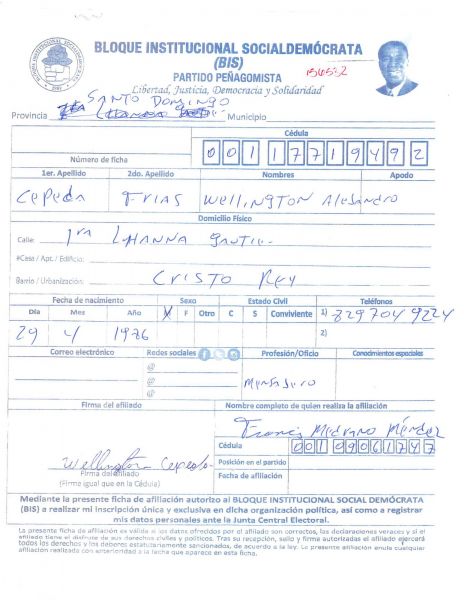 BLOQUE INSTITUCIONAL SOCIALDEMÓCRATA
(BIS)
PARTIDO PEÑAGOMISTA
Libertad, Justicia, Democracia y Solidaridad
BLOQUE INSTITUCIONAL SOCIALDEMÓCRATA
SANTO DOMINGO
Provincia Municipio
Cédula
Número de ficha 0 0 1 1 7 7 1 9 4 9 2
1er. Apellido 2do. Apellido Nombres Apodo
Cepeda Frias Wellington Alejandro
Domicilio Físico
Calle: 1ra
#Casa / Apt. / Edificio:
Barrio / Urbanización: CRISTO Rey
Fecha de nacimiento Sexo Estado Civil Teléfonos
Día Mes Año M F Otro C S Conviviente 1) 829 704 9224
29 4 1986 2)
Correo electrónico Redes sociales Profesión/Oficio Conocimientos especiales
@
@ Mensajero
@
Firma del afiliado Nombre completo de quien realiza la afiliación
Francis Medrano Méndez
Cédula 001 09061747
Wellington Cepeda Posición en el partido
Firma del afiliado Fecha de afiliación
(Firma igual que en la Cédula)
Mediante la presente ficha de afiliación autorizo al BLOQUE INSTITUCIONAL SOCIAL DEMÓCRATA
(BIS) a realizar mi inscripción única y exclusiva en dicha organización política, así como a registrar
mis datos personales ante la Junta Central Electoral.
La presente ficha de afiliación es válida si los datos ofrecidos por el afiliado son correctos, las declaraciones veraces y si el
afiliado tiene el disfrute de sus derechos civiles y políticos. Tras su recepción, sello y firma autorizadas el afiliado ejercerá
todos los derechos y los deberes estatutariamente sancionados, de acuerdo a la ley. La presente afiliación anula cualquier
afiliación realizada con anterioridad a la fecha que aparece en esta ficha.